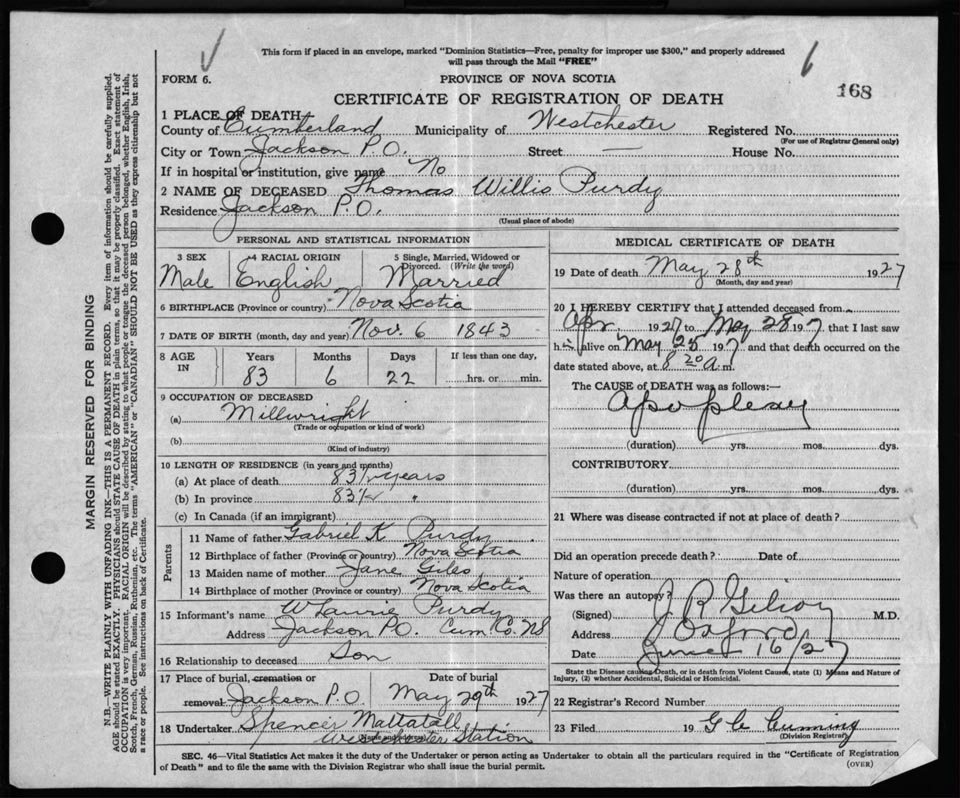 This form if placed in an envelope, marked "Dominion Statistics—Free, penalty for improper use $300," and properly addressed
will pass through the Mail "FREE"
6
FORM 6.
PROVINCE OF NOVA SCOTIA
168
CERTIFICATE OF REGISTRATION OF DEATH
1 PLACE OF DEATH
County of Cumberland Municipality of Westchester Registered No.
(For use of Registrar General only)
City or Town Jackson P.O. Street — House No.
If in hospital or institution, give name No
2 NAME OF DECEASED Thomas Willis Purdy
Residence Jackson P.O.
(Usual place of abode)
PERSONAL AND STATISTICAL INFORMATION
3 SEX 4 RACIAL ORIGIN 5 Single, Married, Widowed or
Divorced. (Write the word)
Male English Married
6 BIRTHPLACE (Province or country) Nova Scotia
7 DATE OF BIRTH (month, day and year) Nov. 6 1843
8 AGE IN Years Months Days If less than one day,
83 6 22 hrs. or min.
9 OCCUPATION OF DECEASED
(a) Millwright
(Trade or occupation or kind of work)
(b)
(Kind of industry)
10 LENGTH OF RESIDENCE (in years and months)
(a) At place of death 83½ years
(b) In province 83½ "
(c) In Canada (if an immigrant)
Parents
11 Name of father Gabriel K Purdy
12 Birthplace of father (Province or country) Nova Scotia
13 Maiden name of mother Jane Giles
14 Birthplace of mother (Province or country) Nova Scotia
15 Informant's name W Laurie Purdy
Address Jackson P.O. Cum. Co. NS
16 Relationship to deceased Son
17 Place of burial, cremation or Date of burial
removal Jackson P.O May 29th 1927
18 Undertaker Spencer Mattatall
Westchester Station
MEDICAL CERTIFICATE OF DEATH
19 Date of death May 28th 1927
(Month, day and year)
20 I HEREBY CERTIFY that I attended deceased from
Apr. 1927 to May 28 1927 that I last saw
h alive on May 25 1927 and that death occurred on the
date stated above, at 8 20 a.m.
The CAUSE of DEATH was as follows:—
Apoplexy
(duration) yrs. mos. dys.
CONTRIBUTORY
(duration) yrs. mos. dys.
21 Where was disease contracted if not at place of death?
Did an operation precede death? Date of
Nature of operation
Was there an autopsy?
(Signed) J R Gilroy M.D.
Address Oxford
Date June 16/27
State the Disease causing Death, or in death from Violent Causes, state (1) Means and Nature of
Injury, (2) whether Accidental, Suicidal or Homicidal.
22 Registrar's Record Number
23 Filed 19 G Cumming
(Division Registrar)
SEC. 46—Vital Statistics Act makes it the duty of the Undertaker or person acting as Undertaker to obtain all the particulars required in the "Certificate of Registration
of Death" and to file the same with the Division Registrar who shall issue the burial permit.
(OVER)
MARGIN RESERVED FOR BINDING
N.B.—WRITE PLAINLY WITH UNFADING INK—THIS IS A PERMANENT RECORD. Every item of information should be carefully supplied.
AGE should be stated EXACTLY. PHYSICIANS should STATE CAUSE OF DEATH in plain terms, so that it may be properly classified. Exact statement of
OCCUPATION is very important. RACIAL ORIGIN will be described by stating to what people or tongue the deceased person belonged, whether English, Irish,
Scotch, French, German, Russian, Ruthenian, etc. The terms "AMERICAN" or "CANADIAN" SHOULD NOT BE USED as they express citizenship but not
a race or people. See instructions on back of Certificate.